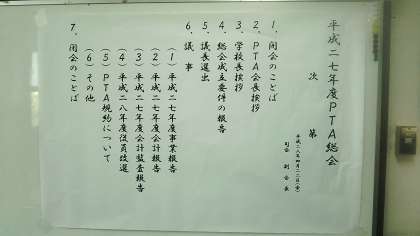 平成二七年度PTA総会
次 第
平成二八年四月二二日(金)
司会 副会長
1.開会のことば
2.PTA会長挨拶
3.学校長挨拶
4.総会成立要件の報告
5.議長選出
6.議 事
(1)平成二七年度事業報告
(2)平成二七年度会計報告
(3)平成二七年度会計監査報告
(4)平成二八年度役員改選
(5)PTA規約について
(6)その他
7.閉会のことば